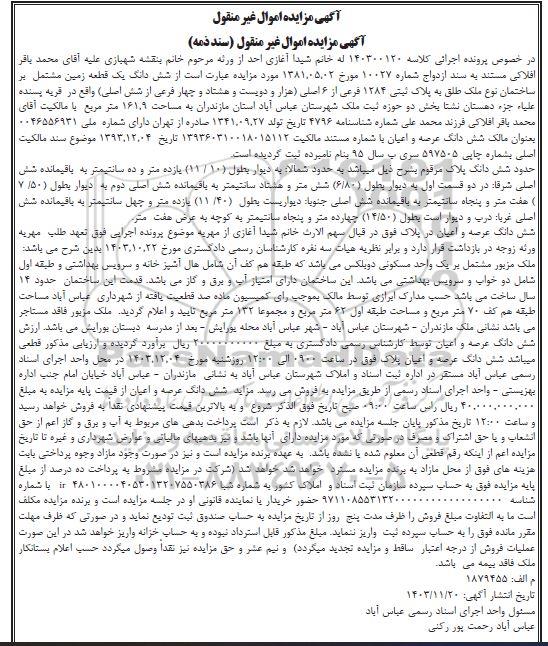 آگهی مزایده اموال غیر منقول
آگهی مزایده اموال غیر منقول (سند ذمه)
در خصوص پرونده اجرائی کلاسه ۱۴۰۳۰۰۱۲۰ له خانم شیدا آغازی احد از ورثه مرحوم خانم بنقشه شهبازی علیه آقای محمد باقر
افلاکی مستند به سند ازدواج شماره ۱۰۰۲۷ مورخ ۱۳۸۱,۰۵,۰۲ مورد مزایده عبارت است از شش دانگ یک قطعه زمین مشتمل بر
ساختمان نوع ملک طلق به پلاک ثبتی ۱۲۸۴ فرعی از ۶ اصلی (هزار و دویست و هشتاد و چهار فرعی از شش اصلی) واقع در قریه پسنده
علیاء جزء دهستان نشتا بخش دو حوزه ثبت ملک شهرستان عباس آباد استان مازندران به مساحت ۱۶۱,۹ متر مربع با مالکیت آقای
محمد باقر افلاکی فرزند محمد علی شماره شناسنامه ۴۷۹۶ تاریخ تولد ۱۳۴۱,۰۹,۲۷ صادره از تهران دارای شماره ملی ۰۰۴۶۵۵۶۹۳۱
بعنوان مالک شش دانگ عرصه و اعیان با شماره مستند مالکیت ۱۳۹۳۶۰۳۱۰۰۱۸۰۱۵۱۱۲ تاریخ ۱۳۹۳,۱۲,۰۴ موضوع سند مالکیت
اصلی بشماره چاپی ۵۹۷۵۰۵ سری پ سال ۹۵ بنام نامبرده ثبت گردیده است.
حدود شش دانگ پلاک مرقوم بشرح ذیل میباشد به حدود شمالا: به دیوار بطول (۱۰ / ۱۱) یازده متر و ده سانتیمتر به باقیمانده شش
اصلی شرقا: در دو قسمت اول به دیوار بطول (۶/۸۰) شش متر و هشتاد سانتیمتر به باقیمانده شش اصلی دوم به دیوار بطول (۵۰/ ۷
) هفت متر و پنجاه سانتیمتر به باقیمانده شش اصلی جنوبا: دیواریست بطول (۴۰/ ۱۱) یازده متر و چهل سانتیمتر به باقیمانده شش
اصلی غربا: درب و دیوار است بطول (۱۴/۵۰) چهارده متر و پنجاه سانتیمتر به کوچه به عرض هفت متر.
شش دانگ عرصه و اعیان در پلاک فوق در قبال سهم الارث خانم شیدا آغازی از مهریه موضوع پرونده اجرایی فوق تعهد طلب مهریه
ورثه زوجه در بازداشت قرار دارد و برابر نظریه هیات سه نفره کارشناسان رسمی دادگستری مورخ ۱۴۰۳,۱۰,۲۲ بدین شرح می باشد:
ملک مزبور مشتمل بر یک واحد مسکونی دوبلکس می باشد که طبقه هم کف آن شامل هال آشپز خانه و سرویس بهداشتی و طبقه اول
شامل دو خواب و سرویس بهداشتی می باشد. این ساختمان دارای امتیاز آب و برق و گاز می باشد. قدمت این ساختمان حدود ۱۴
سال ساخت می باشد حسب مدارک ابرازی توسط مالک بموجب رای کمیسیون ماده صد قطعیت یافته از شهرداری عباس آباد مساحت
طبقه هم کف ۷۰ متر مربع و مساحت طبقه اول ۶۲ متر مربع و مجموعا ۱۳۲ متر مربع تایید و اعلام گردید. ملک مزبور فاقد مستاجر
می باشد نشانی ملک مازندران - شهرستان عباس آباد - شهر عباس آباد محله پورایش - بعد از مدرسه دیستان پورایش می باشد. ارزش
شش دانگ عرصه و اعیان توسط کارشناس رسمی دادگستری به مبلغ ۴۰,۰۰۰,۰۰۰,۰۰۰ ریال برآورد گردیده و ارزیابی مذکور قطعی
میباشد شش دانگ عرصه و اعیان پلاک فوق در ساعت ۰۹:۰۰ الی ۱۲:۰۰ روزشنبه مورخ ۱۴۰۳,۱۲,۰۴ در محل واحد اجرای اسناد
رسمی عباس آباد مستقر در اداره ثبت اسناد و املاک شهرستان عباس آباد به نشانی مازندران - عباس آباد خیابان امام جنب اداره
بهزیستی - واحد اجرای اسناد رسمی از طریق مزایده به فروش می رسد. مزاید شش دانگ عرصه و اعیان از قیمت پایه مزایده به مبلغ
۴۰,۰۰۰,۰۰۰,۰۰۰ ریال راس ساعت ۰۹:۰۰ صبح تاریخ فوق الذکر شروع و به بالاترین قیمت پیشنهادی نقدا به فروش خواهد رسید
و ساعت ۱۲:۰۰ تاریخ مذکور پایان جلسه مزایده می باشد. لازم به ذکر است پرداخت بدهی های مربوط به آب و برق و گاز اعم از حق
انشعاب و یا حق اشتراک و مصرف در صورتی که مورد مزایده دارای آنها باشد و نیز بدهیهای مالیاتی و عوارض شهرداری و غیره تا تاریخ
مزایده اعم از اینکه رقم قطعی آن معلوم شده یا نشده باشد. به عهده برنده مزایده است و نیز در صورت وجود مازاد وجوه پرداختی بابت
هزینه های فوق از محل مازاد به برنده مزایده مسترد خواهد شد خواهد شد (شرکت در مزایده مشروط به پرداخت ده درصد از مبلغ
پایه مزایده فوق به حساب سپرده سازمان ثبت اسناد و املاک کشور به شماره شبا ir ۴۸۰۱۰۰۰۰۴۰۵۳۰۱۳۲۰۷۵۵۰۳۸۶ با شماره
شناسه ۹۷۱۱۰۸۵۵۳۱۳۲۰۰۰۰۰۰۰۰۰۰۰۰۰۰۰۰۰۰ حضور خریدار یا نماینده قانونی او در جلسه مزایده است و برنده مزایده مکلف
است ما به التفاوت مبلغ فروش را ظرف مدت پنج روز از تاریخ مزایده به حساب صندوق ثبت تودیع نماید و در صورتی که ظرف مهلت
مقرر مانده فوق را به حساب سپرده ثبت واریز ننماید. مبلغ مذکور قابل استرداد نبوده و به حساب خزانه واریز خواهد شد در این صورت
عملیات فروش از درجه اعتبار ساقط و مزایده تجدید میگردد) و نیم عشر و حق مزایده نیز نقداً وصول میگردد حسب اعلام بستانکار
ملک فاقد بیمه می باشد.
م الف: ۱۸۷۹۴۵۵
تاریخ انتشار آگهی: ۱۴۰۳/۱۱/۲۰
مسئول واحد اجرای اسناد رسمی عباس آباد
عباس آباد رحمت پور رکنی